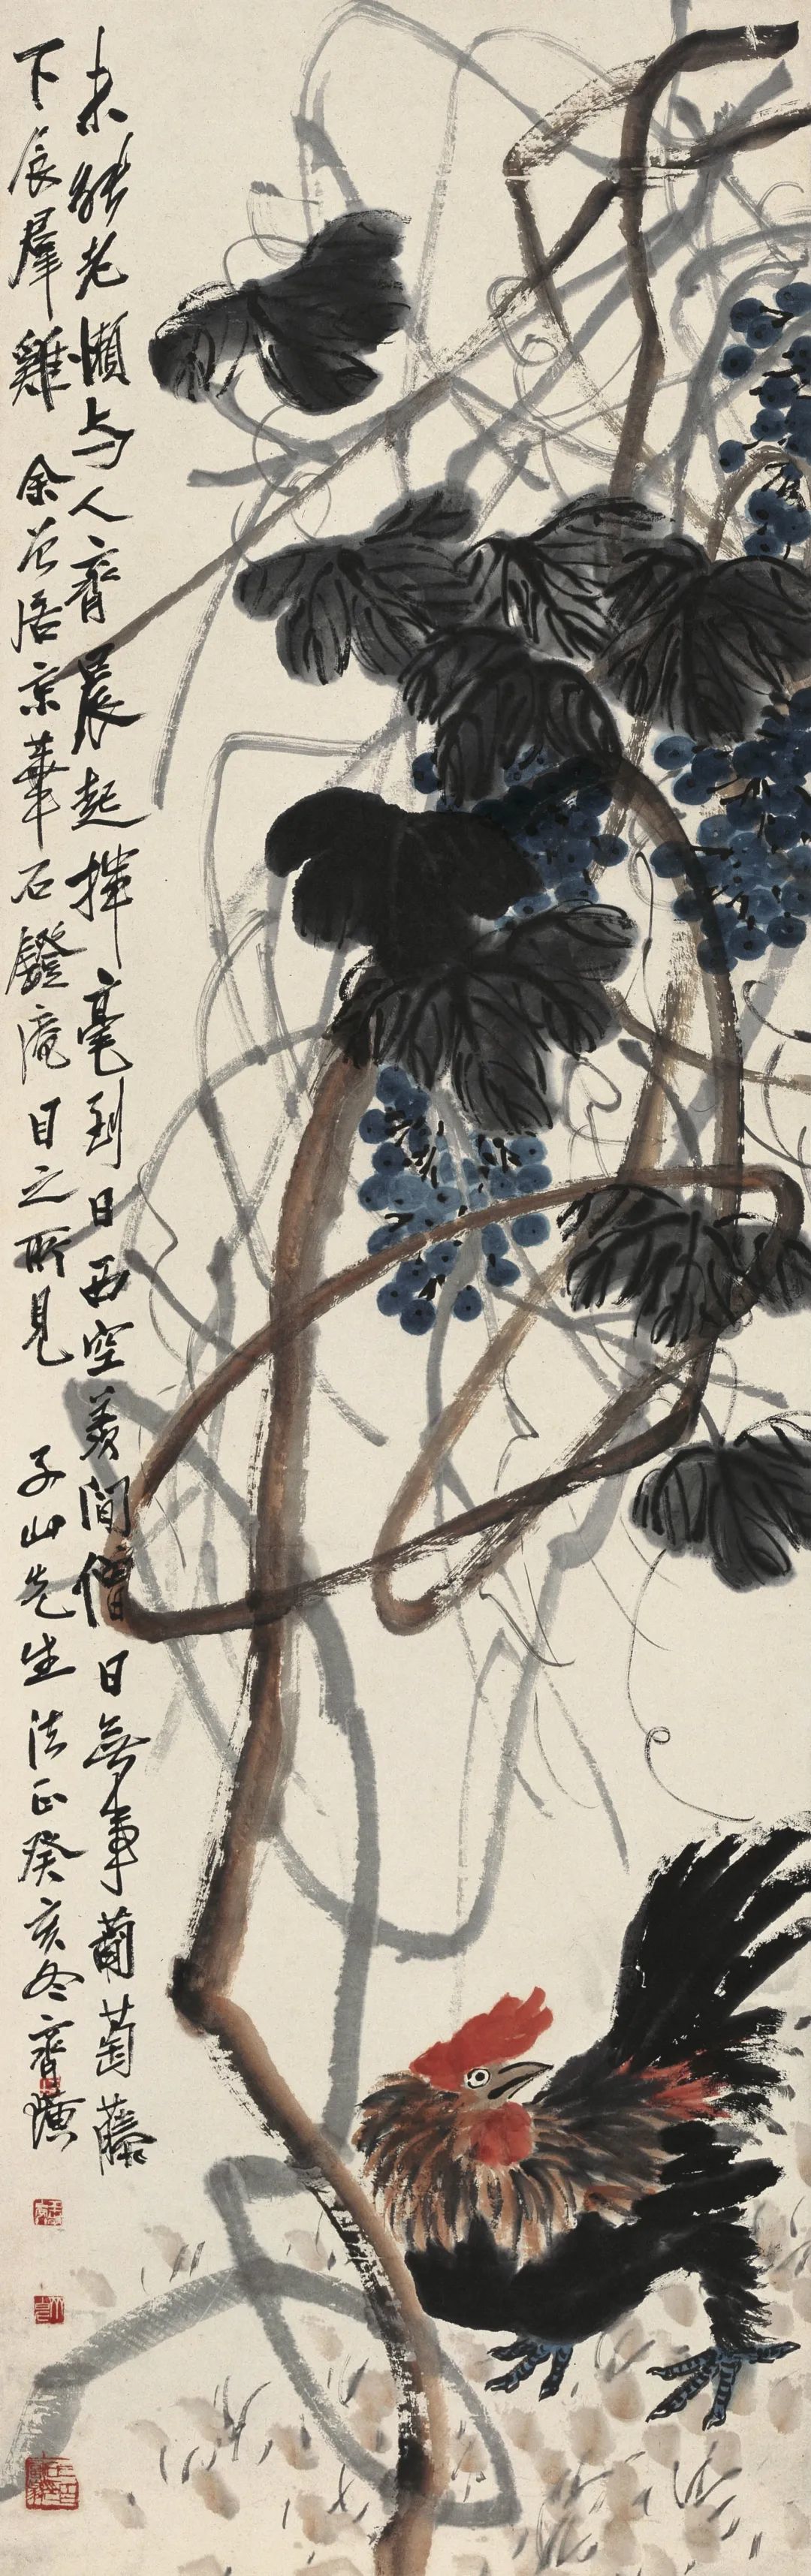 未能老懶與人齊晨起揮毫到日西空羨閒僧日無事葡萄藤
下食群雞 余曾居京華石鐙庵目之所見 子山先生法正癸亥冬齊璜